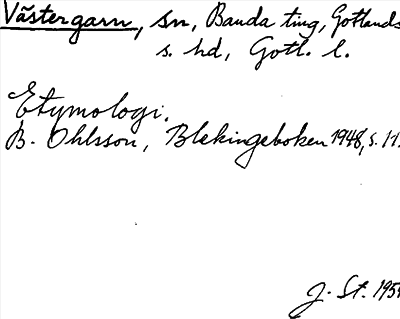 Västergarn, sn, Banda ting, Gotlands
s. hd, Gotl. l.
Etymologi.
B. Ohlsson, Blekingeboken 1948, s. 11.
J. St. 195